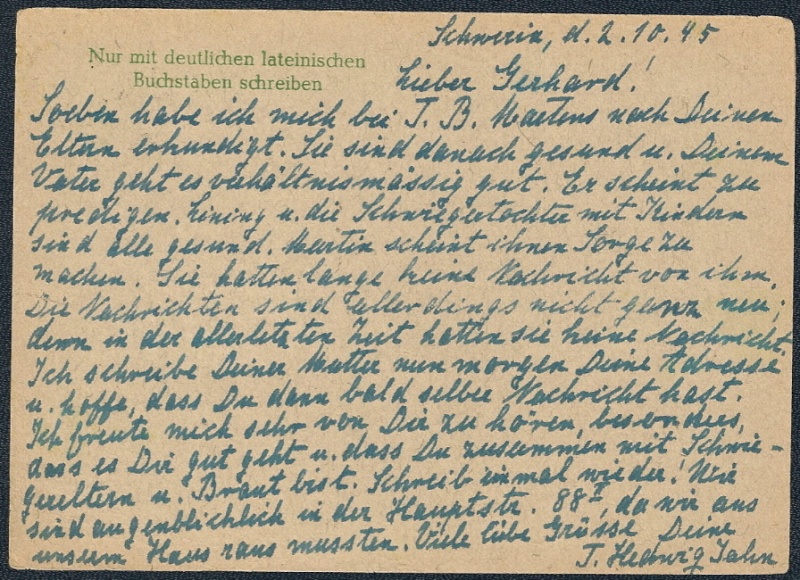 Schwerin, d. 2.10.45
Nur mit deutlichen lateinischen
Buchstaben schreiben
Lieber Gerhard!
Soeben habe ich mich bei T. B. Martens nach Deinen
Eltern erkundigt. Sie sind danach gesund u. Deinem
Vater geht es verhältnismässig gut. Er scheint zu
predigen. Lining u. die Schwiegertochter mit Kindern
sind alle gesund. Martin scheint ihnen Sorge zu
machen. Sie hatten lange keine Nachricht von ihm.
Die Nachrichten sind allerdings nicht ganz neu;
denn in der allerletzten Zeit hatten sie keine Nachricht.
Ich schreibe Deiner Mutter nun morgen Deine Adresse
u. hoffe, dass Du dann bald selber Nachricht hast.
Ich freute mich sehr von Dir zu hören, besonders,
dass es Dir gut geht u. dass Du zusammen mit Schwie-
gereltern u. Braut bist. Schreib einmal wieder! Wir
sind augenblicklich in der Hauptstr. 88 II, da wir aus
unserm Haus raus mussten. Viele liebe Grüsse Deine
T. Hedwig Jahn